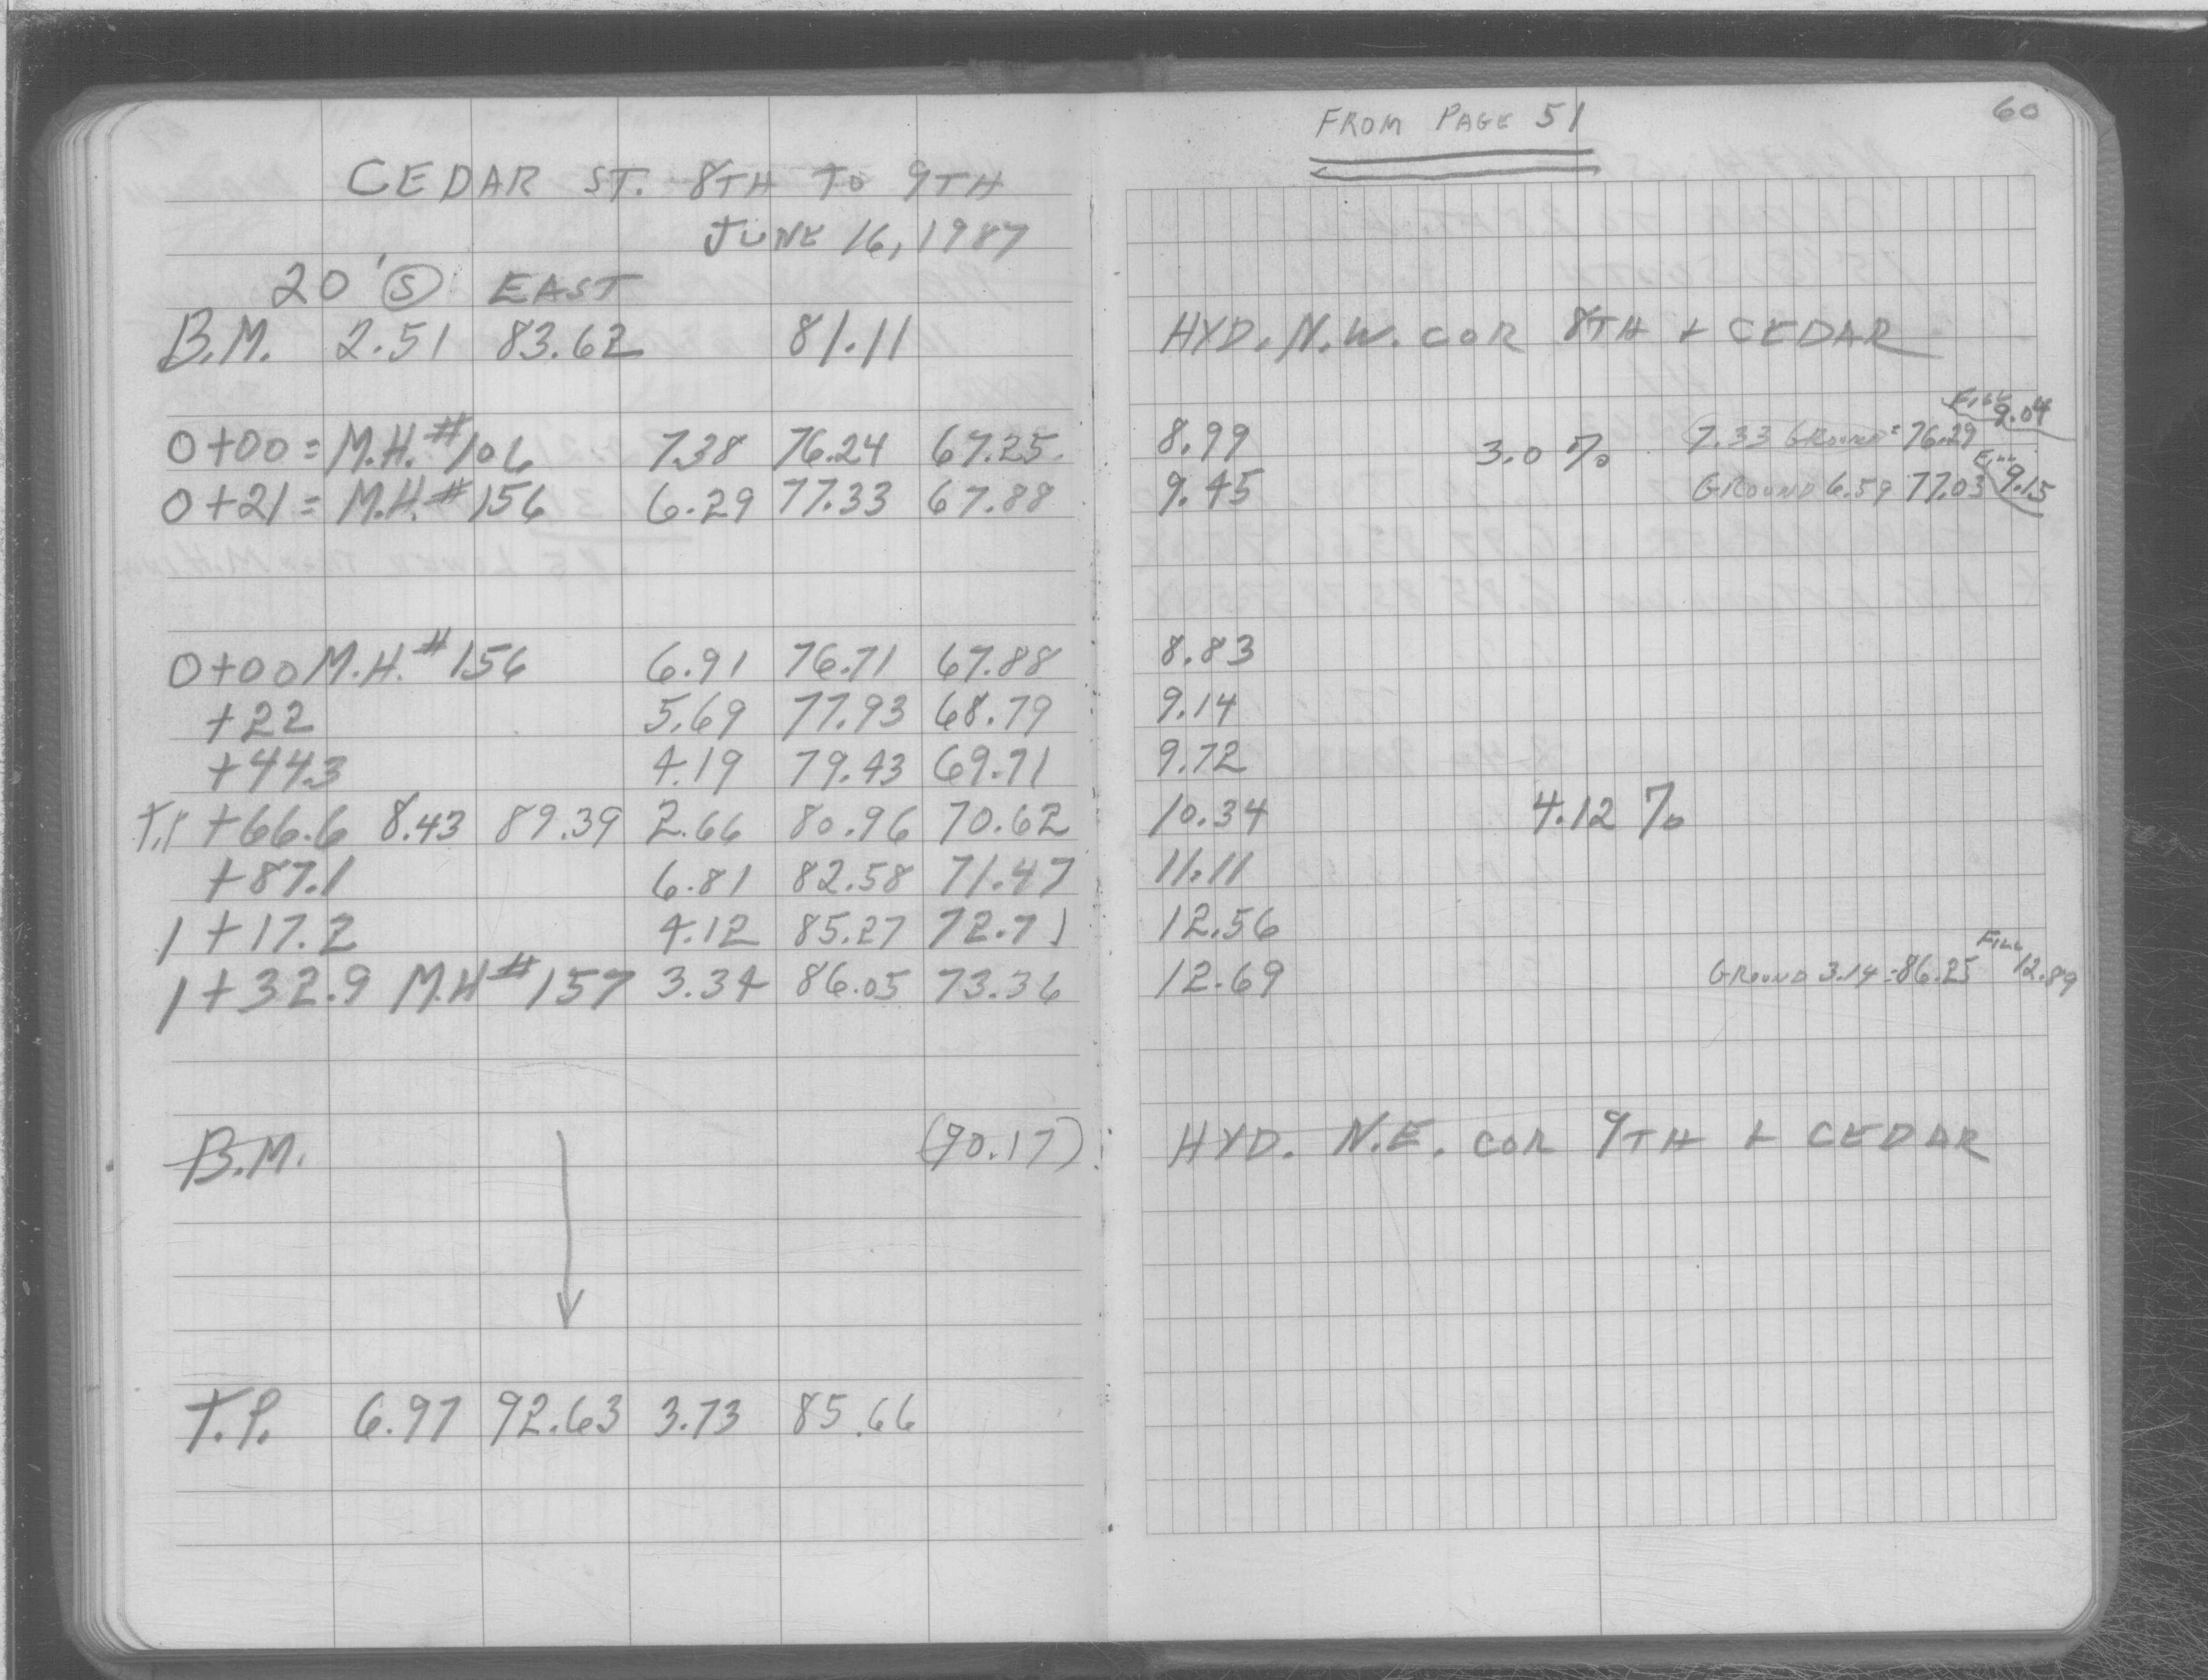 CEDAR ST. 8TH TO 9TH
JUNE 16, 1987
20' S EAST
B.M. 2.51 83.62 81.11
0+00 = M.H. #106 7.38 76.24 67.25
0+21 = M.H. #156 6.29 77.33 67.88
0+00 M.H. #156 6.91 76.71 67.88
+22 5.69 77.93 68.79
+44.3 4.19 79.43 69.71
T.P. +66.6 8.43 89.39 2.66 80.96 70.62
+87.1 6.81 82.58 71.47
1+17.2 4.12 85.27 72.71
1+32.9 M.H #157 3.34 86.05 73.36
B.M. (90.17)
T.P. 6.97 92.63 3.73 85.66
60
FROM PAGE 51
HYD. N.W. COR 8TH + CEDAR
FILL 9.04
8.99 3.0 % 7.33 GROUND = 76.29
FILL
9.45 GROUND 6.59 77.03 9.15
8.83
9.14
9.72
10.34 4.12 %
11.11
12.56
FILL
12.69 GROUND 3.14 = 86.25 12.89
HYD. N.E. COR 9TH + CEDAR